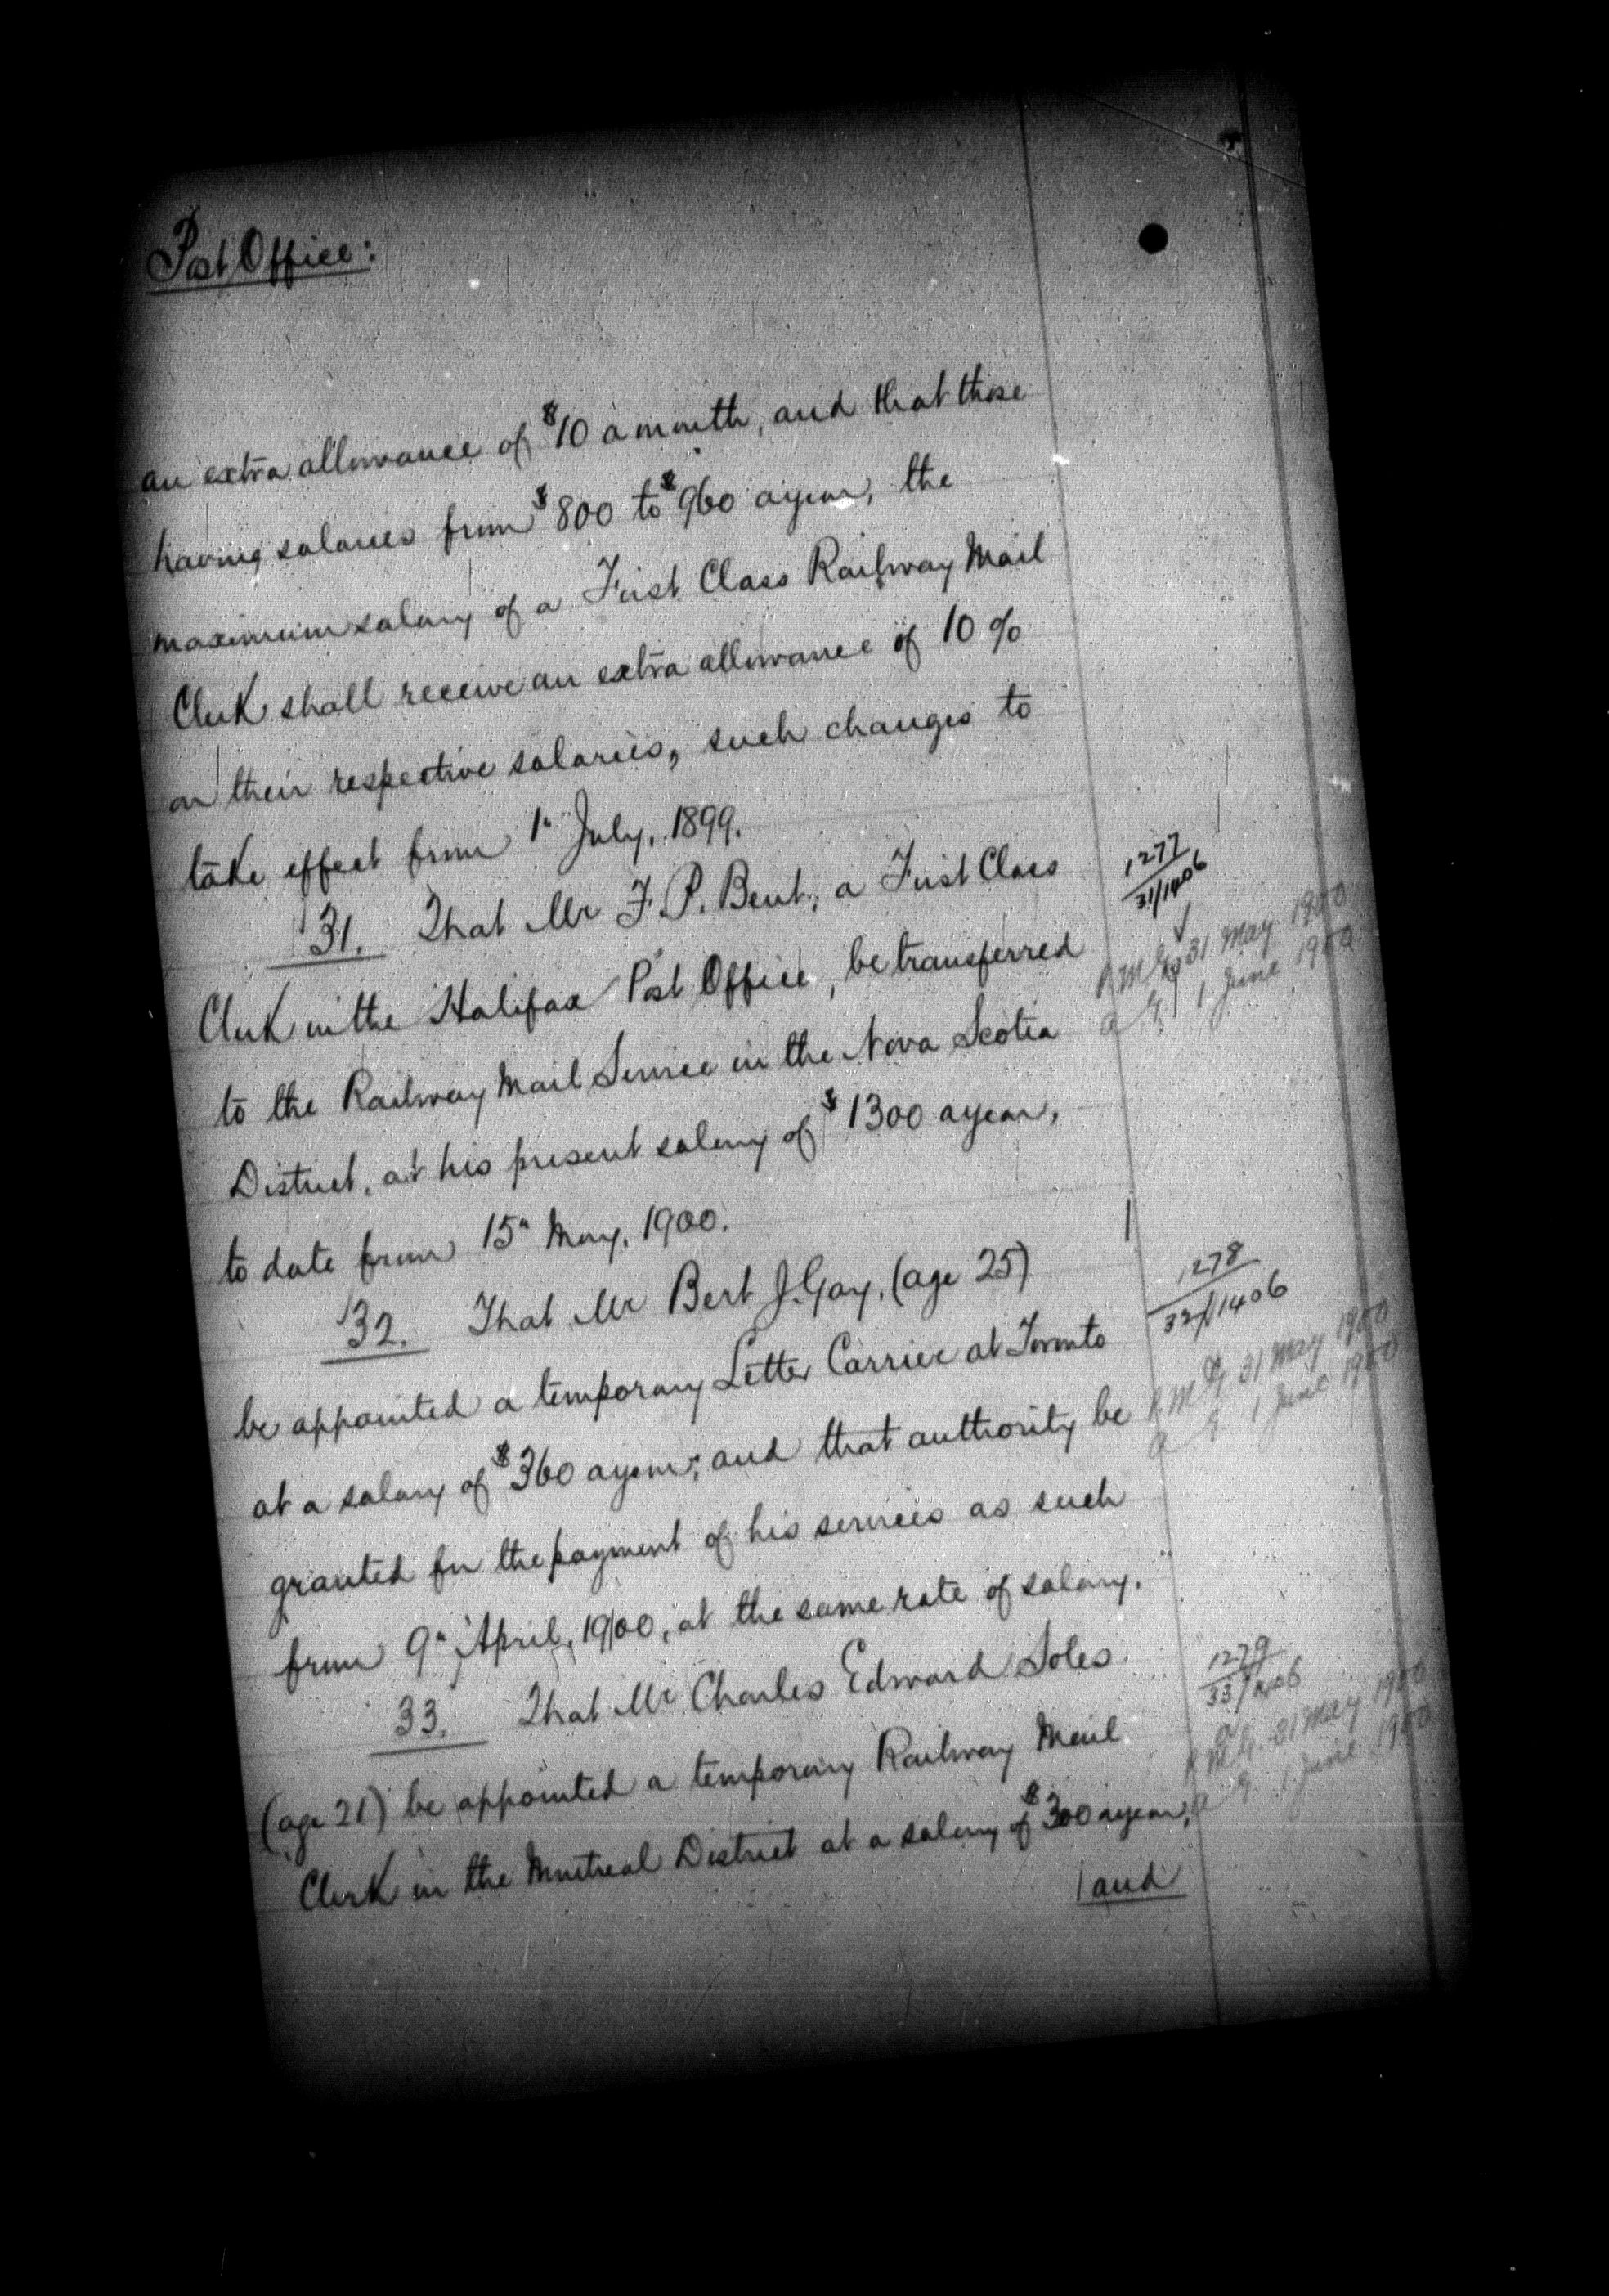 Post Office:
an extra allowance of $10 a month, and that those
having salaries from $800 to $960 a year, the
maximum salary of a First Class Railway Mail
Clerk shall receive an extra allowance of 10%
on their respective salaries, such changes to
take effect from 1" July, 1899.
31. That Mr F. P. Bent, a First Class
1277
31/1406
Clerk in the Halifax Post Office, be transferred
P.M.G. 31 May 1900
a G. 1 June 1900
to the Railway Mail Service in the Nova Scotia
District, at his present salary of $1300 a year,
to date from 15" May, 1900.
32. That Mr Bert J. Gay, (age 25)
1278
32/1406
be appointed a temporary Letter Carrier at Toronto
P.M.G. 31 May 1900
a G. 1 June 1900
at a salary of $360 a year; and that authority be
granted for the payment of his services as such
from 9" April, 1900, at the same rate of salary.
33. That Mr Charles Edward Soles
1279
33/1406
(age 21) be appointed a temporary Railway Mail
P.M.G. 31 May 1900
a G. 1 June 1900
Clerk in the Montreal District at a salary of $300 a year;
/and